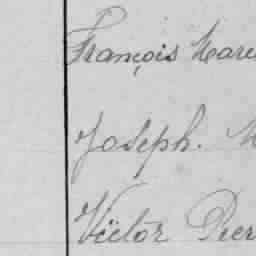 François Mare
Joseph. M
Victor Pier